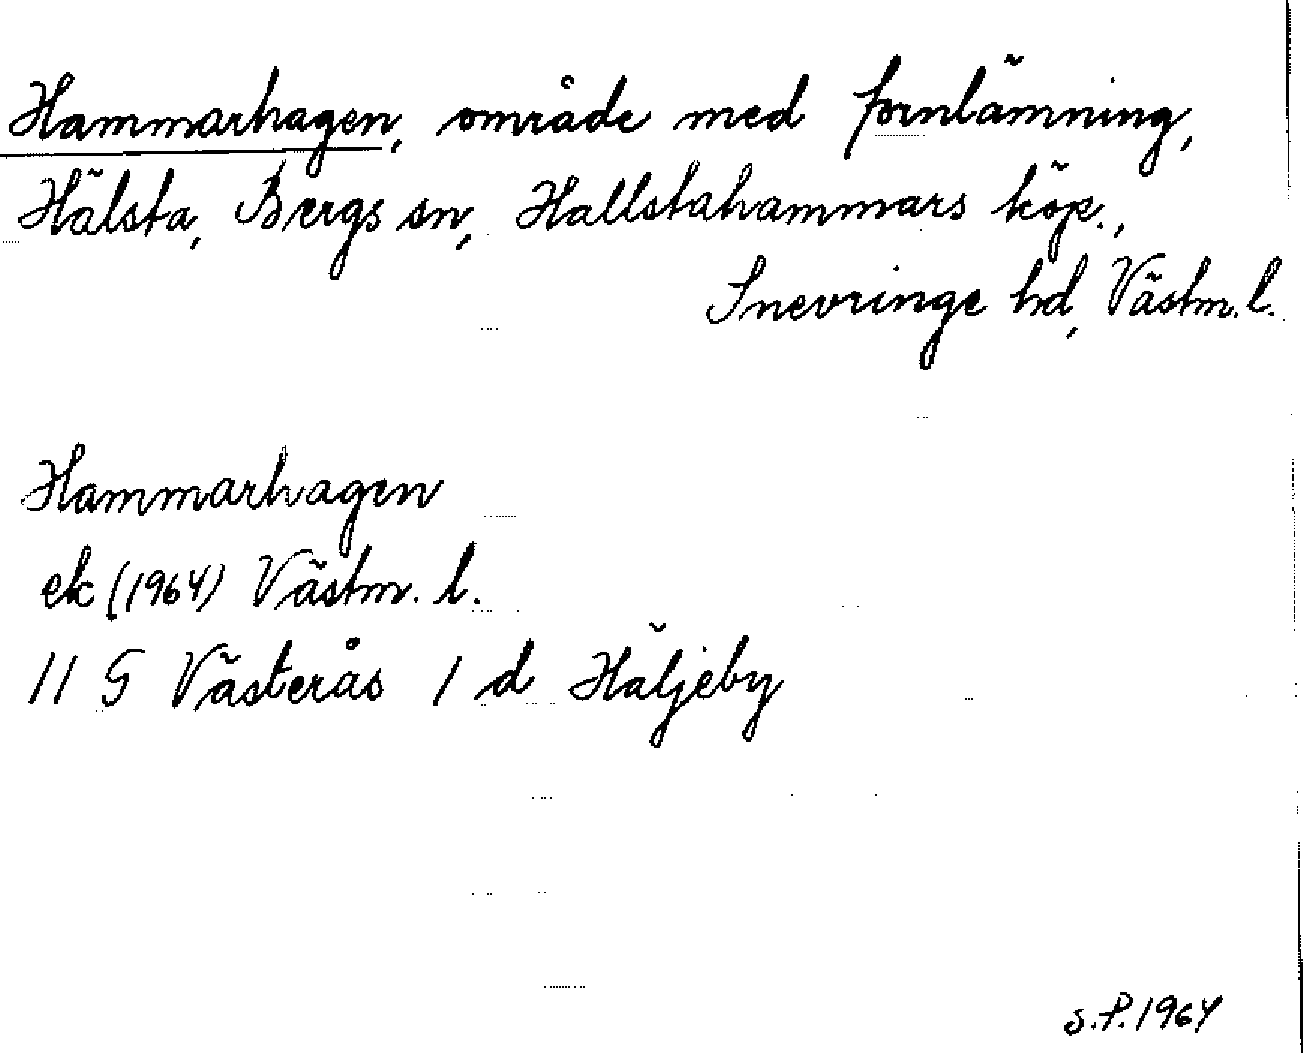 Hammarhagen, område med fornlämning,
Hälsta, Bergs sn, Hallstahammars köp.,
Snevringe hd, Västm. l.
Hammarhagen
ek (1964) Västm. l.
11 G Västerås 1 d Häljeby
S.P. 1964